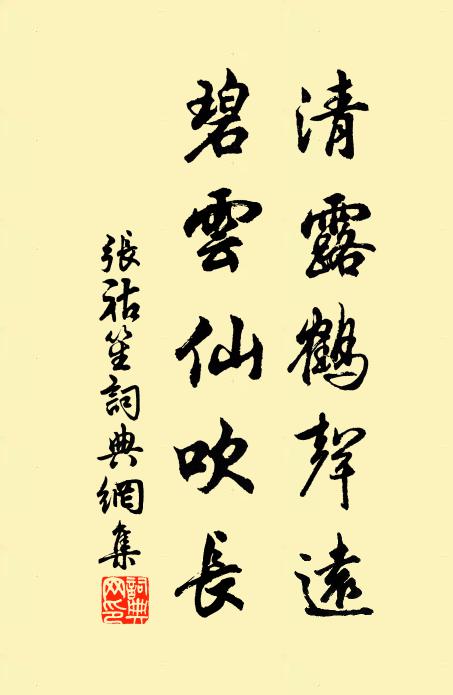 清露鶴聲遠
碧雲仙吹長
張祜笙詞典網集
詞典網印